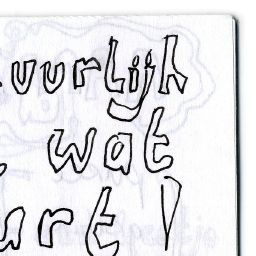 uurlijk
, wat
urt!